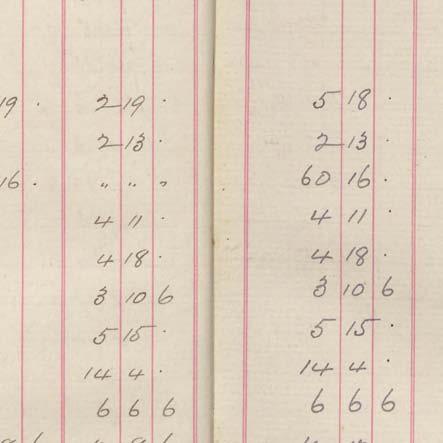 19 . 2 19 . 5 18 .
2 13 . 2 13 .
16 . " " " 60 16 .
4 11 . 4 11 .
4 18 . 4 18 .
3 10 6 3 10 6
5 15 . 5 15 .
14 4 . 14 4 .
6 6 6 6 6 6